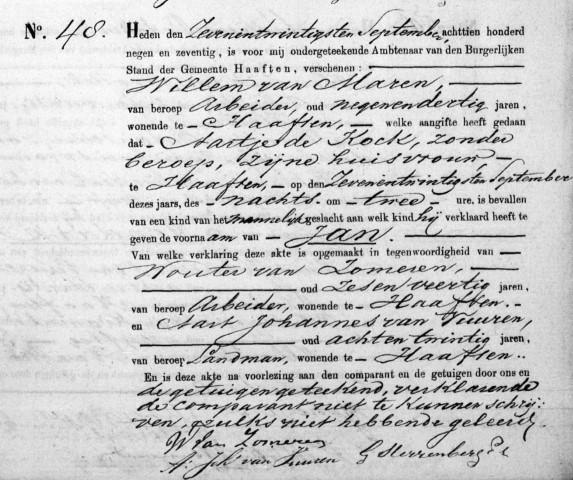 No. 48. Heden den Zevenentwintigsten September achttien honderd
negen en zeventig, is voor mij ondergeteekende Ambtenaar van den Burgerlijken
Stand der Gemeente Haaften, verschenen:
Willem van Maren,
van beroep Arbeider, oud negenendertig jaren,
wonende te Haaften, welke aangifte heeft gedaan
dat Aartje de Kock, zonder
beroep, zijne huisvrouw
te Haaften, op den Zevenentwintigsten September
dezes jaars, des nachts om twee ure, is bevallen
van een kind van het mannelijk geslacht aan welk kind hij verklaard heeft te
geven de voornaam van Jan.
Van welke verklaring deze akte is opgemaakt in tegenwoordigheid van
Wouter van Zomeren,
oud Zesenveertig jaren,
van beroep Arbeider, wonende te Haaften.
en Aart Johannes van Tuuren,
oud achtentwintig jaren,
van beroep Landman, wonende te Haaften.
En is deze akte na voorlezing aan den comparant en de getuigen door ons en
de getuigen geteekend, verklarende
de comparant niet te kunnen schrij:
ven, zulks niet hebbende geleerd.
W van Zomeren
A: Joh: van Tuuren